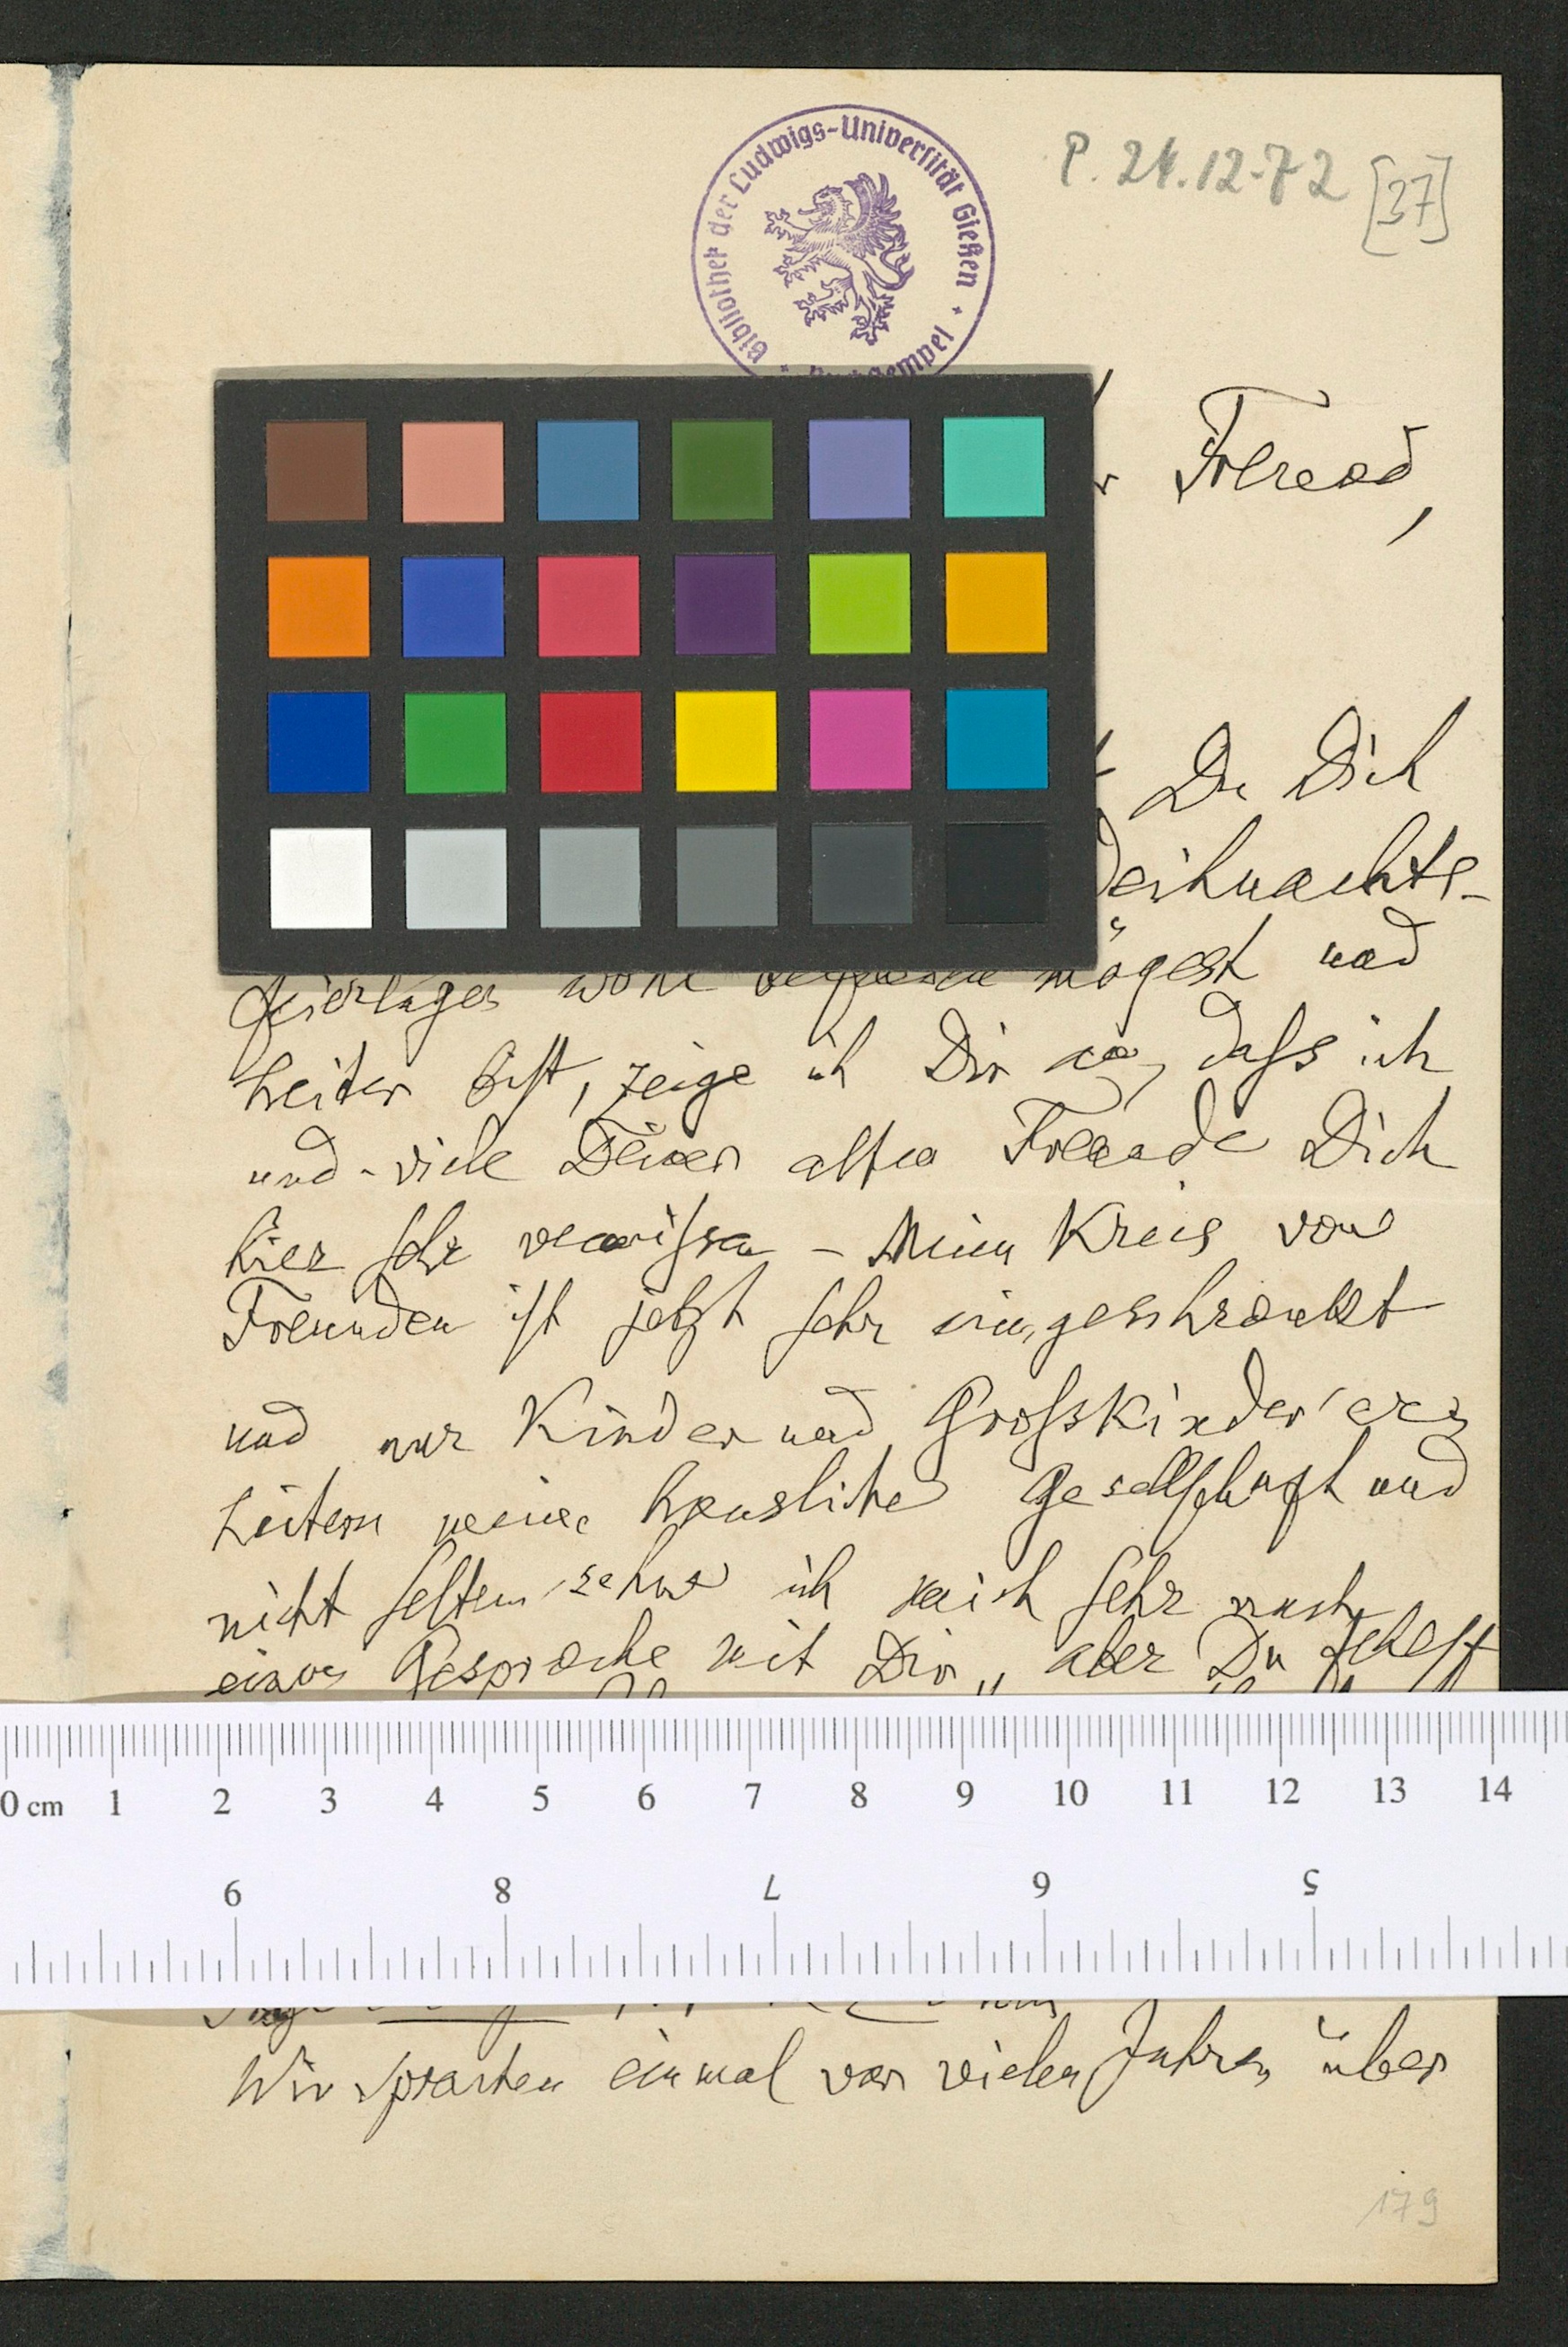 Bibliothek der Ludwigs-Universität Gießen
P. 24.12.72 [37]
Freund,
Du Dich
Weihnachts-
feiertages wohl befinden mögest und
heiter bist, zeige ich Dir an, dass ich
und viele Deiner alten Freunde Dich
hier sehr vermissen – Mein Kreis von
Freunden ist jetzt sehr eingeschränkt
und nur Kinder und Grosskinder
heitern meine häusliche Gesellschaft und
nicht selten sehne ich mich sehr nach
einem Gespräche mit Dir, aber Du
0 cm 1 2 3 4 5 6 7 8 9 10 11 12 13 14
9 8 7 6 5
Wir sprachen einmal vor vielen Jahren über
179